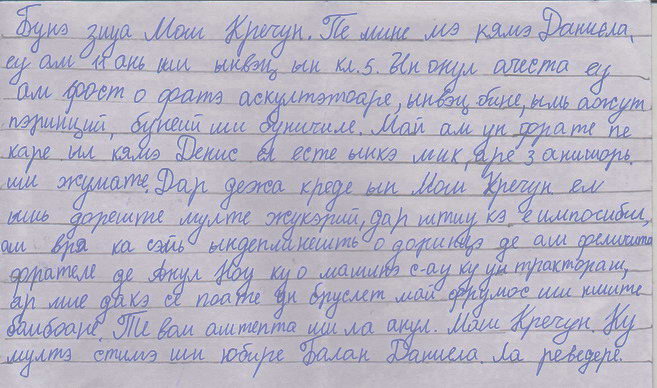 Бунэ зиуа Мош Кречун. Пе мине мэ кямэ Даниела,
еу ам 11 ань ши ынвэц ын кл. 5. Ын онул ачеста еу
ам фост о фатэ аскултэтоаре, ынвэц бине, ымь ажут
пэринций, бунеий ши буничиле. Май ам ун фрате пе
каре ыл кямэ Денис ел есте ынкэ мик, аре 3 анишорь
ши жумате. Дар дежа креде ын Мош Кречун ел
ышь дореште мулте жукэрий, дар штиу кэ е импосибил,
ам вря ка сэйь ындеплинешть о доринцэ де ам феличита
фрателе де Анул Ноу ку о машинэ с-ау ку ун трактораш,
ар мие дакэ се поате ун бруслет май фрумос ши ниште
бамбоане. Те вом аштепта ши ла анул. Мош Кречун. Ку
мултэ стимэ ши юбире Балан Даниела. Ла реведере.